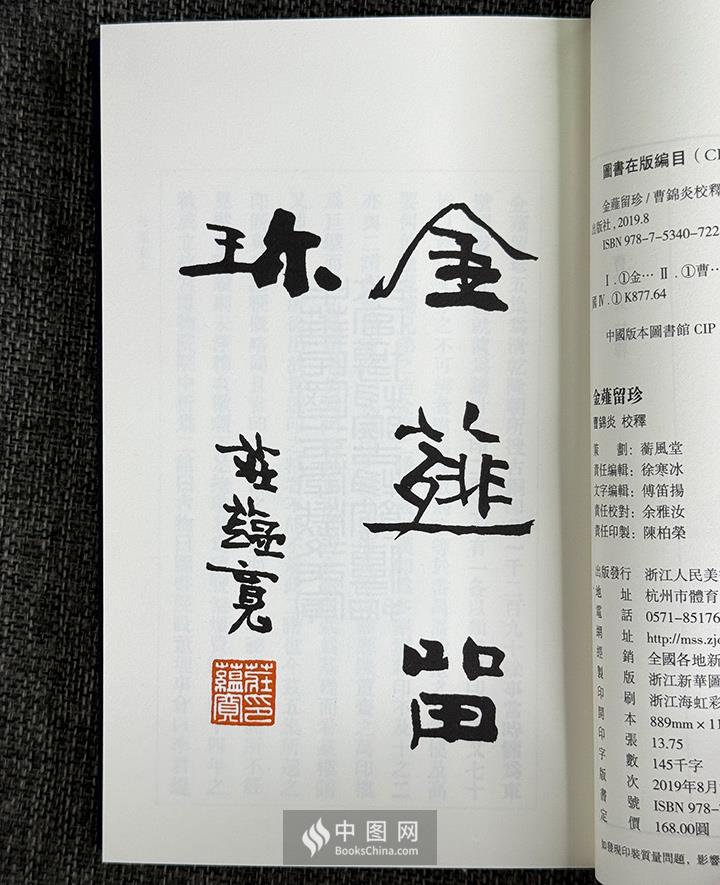 金薤留
珎
莊蘊寬
莊印
蘊寬
圖書在版編目（CI
金薤留珍/曹錦炎校釋
出版社，2019.8
ISBN 978-7-5340-722
Ⅰ.①金… Ⅱ.①曹…
國Ⅳ.①K877.64
中國版本圖書館 CIP
金薤留珍
曹錦炎 校釋
策 劃：蘅風堂
責任編輯：徐寒冰
文字編輯：傅笛揚
責任校對：余雅汝
責任印製：陳柏榮
出版發行 浙江人民美
地 址 杭州市體育
電 話 0571-85176
網 址 http://mss.zjc
經 銷 全國各地新
製 版 浙江新華圖
印 刷 浙江海虹彩
開 本 889mm×11
印 張 13.75
字 數 145千字
版 次 2019年8月
書 號 ISBN 978-7
定 價 168.00圓
如發現印裝質量問題，影響
中图网
BooksChina.com